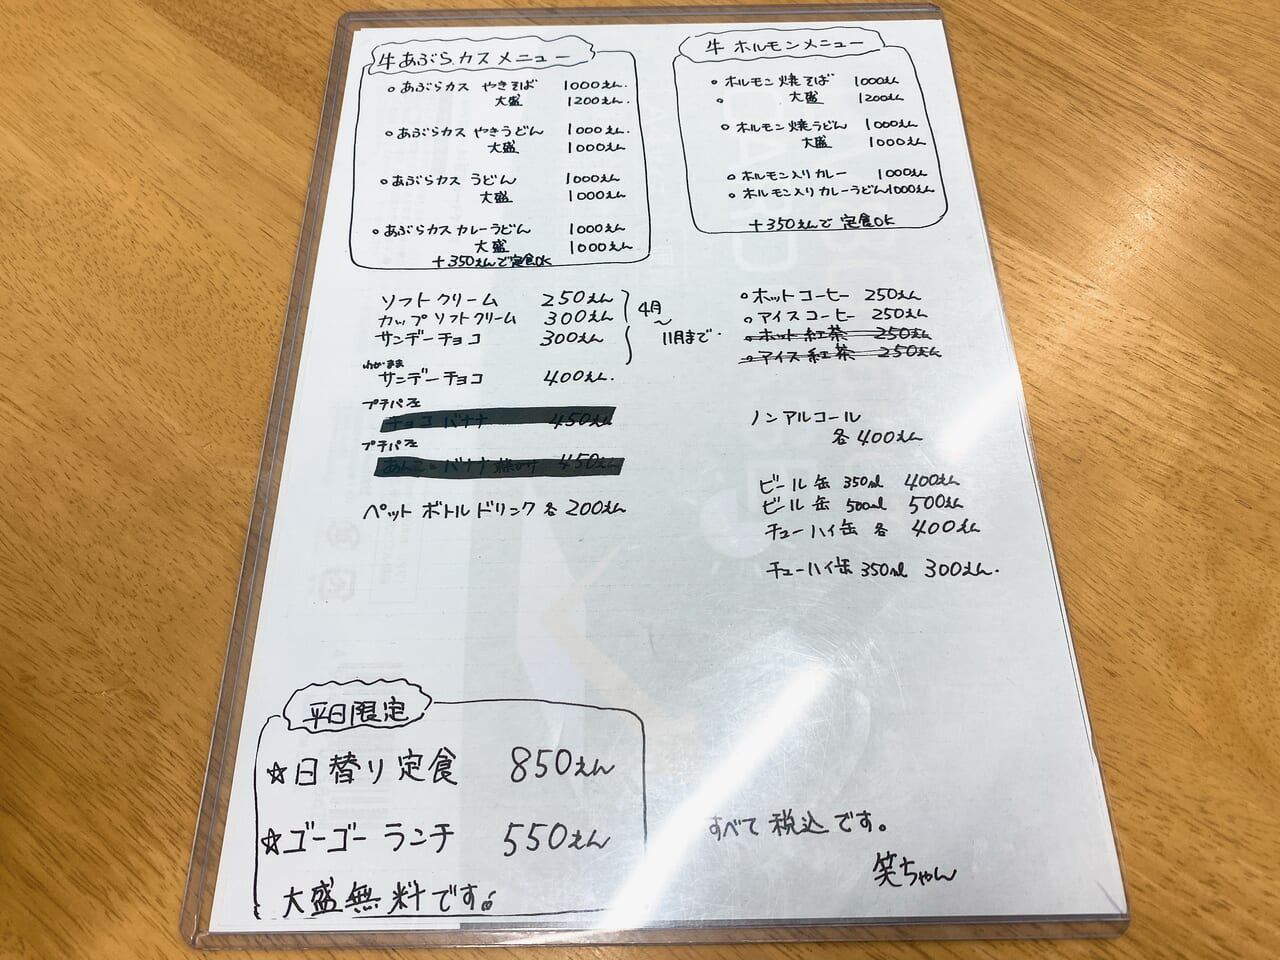 牛あぶらカスメニュー
○あぶらカス やきそば 1000えん.
大盛 1200えん.
○あぶらカス やきうどん 1000えん.
大盛 1000えん
○あぶらカス うどん 1000えん
大盛 1000えん
○あぶらカスカレーうどん 1000えん
大盛 1000えん
+350えんで定食OK
牛ホルモンメニュー
○ホルモン焼そば 1000えん
○ 大盛 1200えん
○ホルモン焼うどん 1000えん
大盛 1000えん
○ホルモン入りカレー 1000えん
○ホルモン入りカレーうどん1000えん
+350えんで定食OK
ソフトクリーム 250えん
カップソフトクリーム 300えん
サンデーチョコ 300えん
4月
〜
11月まで.
わがまま
サンデーチョコ 400えん.
プチパフェ
チョコバナナ 450えん
プチパフェ
バナナ 450えん
ペットボトルドリンク各200えん
○ホットコーヒー 250えん
○アイスコーヒー 250えん
○ホット紅茶 250えん
○アイス紅茶 250えん
ノンアルコール
各400えん
ビール缶 350ml 400えん
ビール缶 500ml 500えん
チューハイ缶 各 400えん
チューハイ缶 350ml 300えん.
平日限定
☆日替り定食 850えん
☆ゴーゴーランチ 550えん
大盛無料です。
すべて税込です。
笑ちゃん